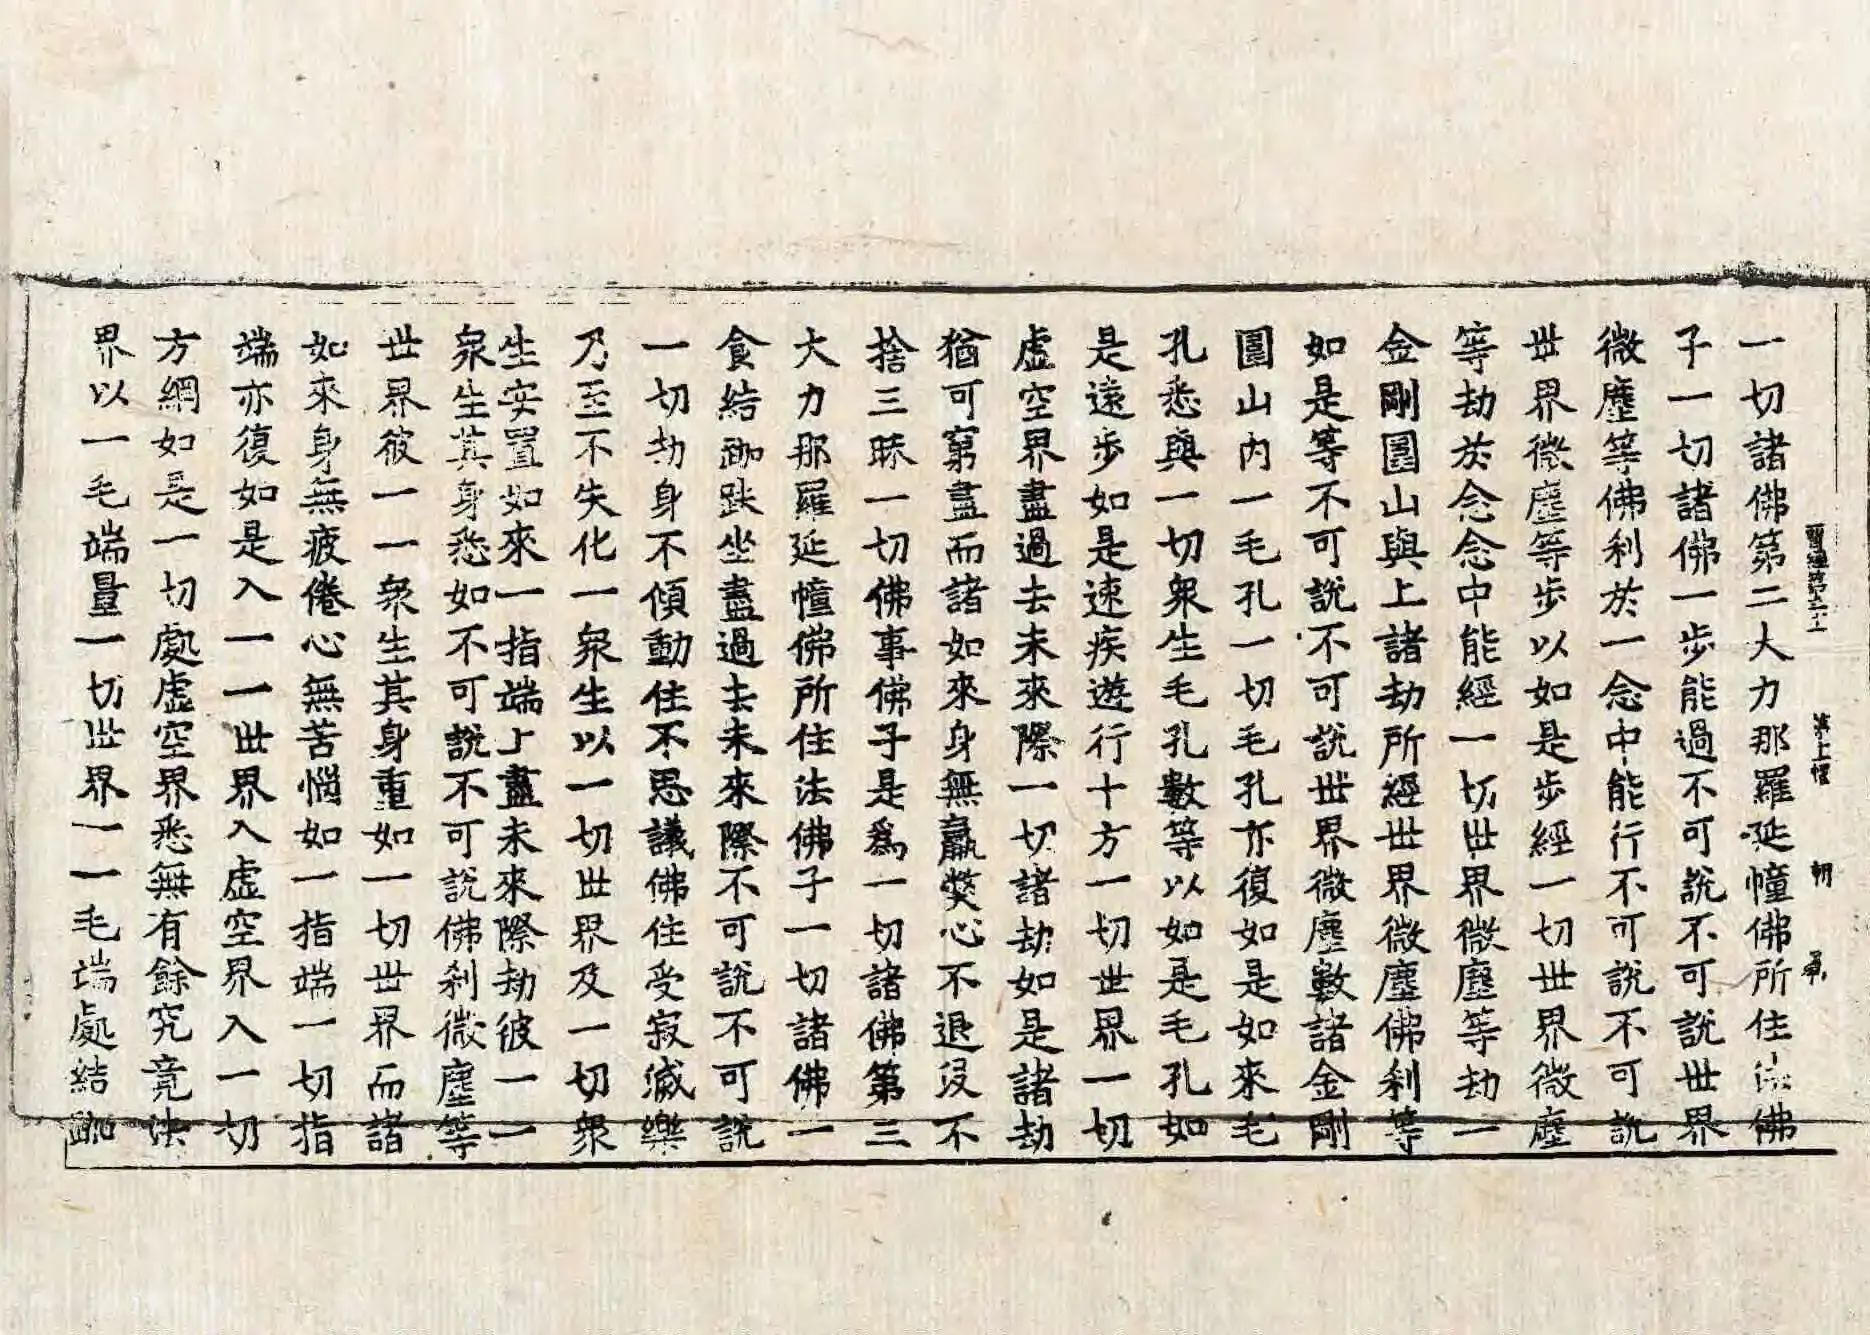 一切諸佛第二大力那羅延幢佛所住法佛
子一切諸佛一步能過不可說不可說世界
微塵等佛刹於一念中能行不可說不可說
世界微塵等步以如是步經一切世界微塵
等劫於念念中能經一切世界微塵等劫一
金剛圍山與上諸劫所經世界微塵佛刹等
如是等不可說不可說世界微塵數諸金剛
圍山内一毛孔一切毛孔亦復如是如來毛
孔悉與一切衆生毛孔數等以如是毛孔如
是遠步如是速疾遊行十方一切世界一切
虛空界盡過去未來際一切諸劫如是諸劫
猶可窮盡而諸如來身無羸獘心不退沒不
捨三昧一切佛事佛子是爲一切諸佛第三
大力那羅延幢佛所住法佛子一切諸佛一
食結跏趺坐盡過去未來際不可說不可說
一切劫身不傾動住不思議佛住受寂滅樂
乃至不失化一衆生以一切世界及一切衆
生安置如來一指端上盡未來際劫彼一一
衆生其身悉如不可說不可說佛刹微塵等
世界彼一一衆生其身重如一切世界而諸
如來身無疲倦心無苦惱如一指端一切指
端亦復如是入一一世界入虛空界入一切
方網如是一切處虛空界悉無有餘究竟法
界以一毛端量一切世界一一毛端處結跏